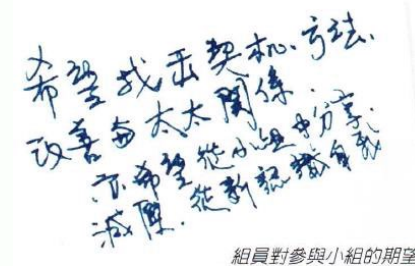 希望找出契机、方法.
改善与太太関係.
亦希望從小組中分享.
減壓.從新認識自我
組員對參與小組的期望